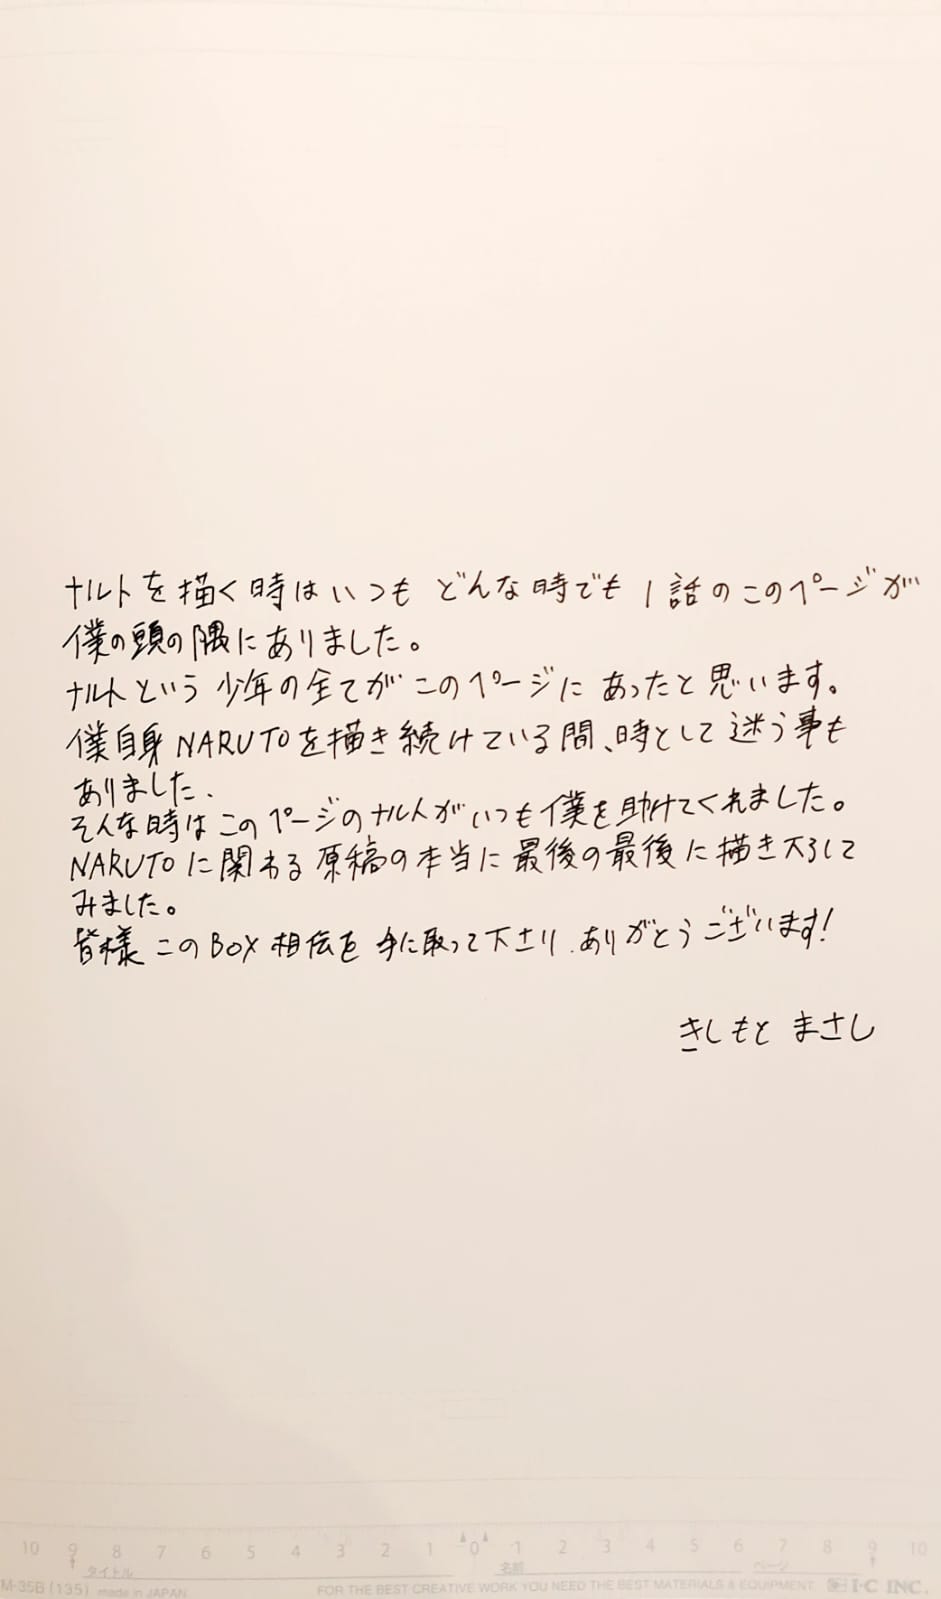 ナルトを描く時はいつも どんな時でも 1話のこのページが
僕の頭の隅にありました。
ナルトという少年の全てがこのページに あったと思います。
僕自身NARUTOを描き続けている間、時として迷う事も
ありました、
そんな時はこのページのナルトがいつも僕を助けてくれました。
NARUTOに関わる原稿の本当に最後の最後に描き下ろして
みました。
皆様 このBOX相伝を 手に取って下さり、ありがとうございます!
きしもと まさし
10 9 8 7 6 5 4 3 2 1 0 1 2 3 4 5 6 7 8 9 10
タイトル 名前 ページ
M-35B (135) made in JAPAN FOR THE BEST CREATIVE WORK YOU NEED THE BEST MATERIALS & EQUIPMENT I·C INC.